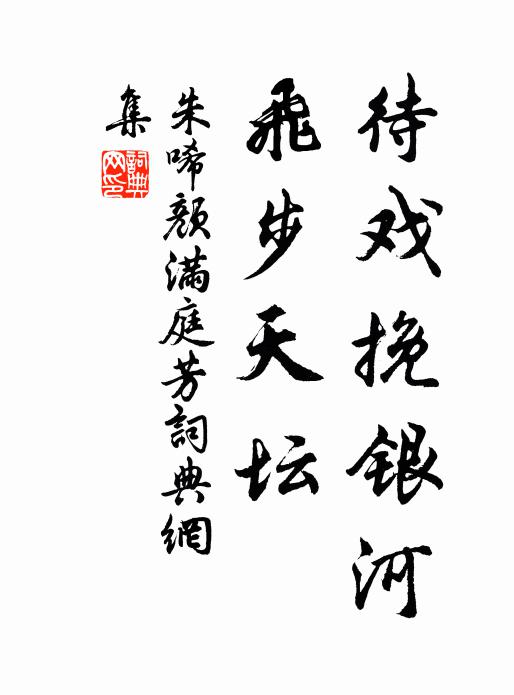 待戏挽银河
飛步天坛
朱唏颜满庭芳詞典網
集
詞典
网印